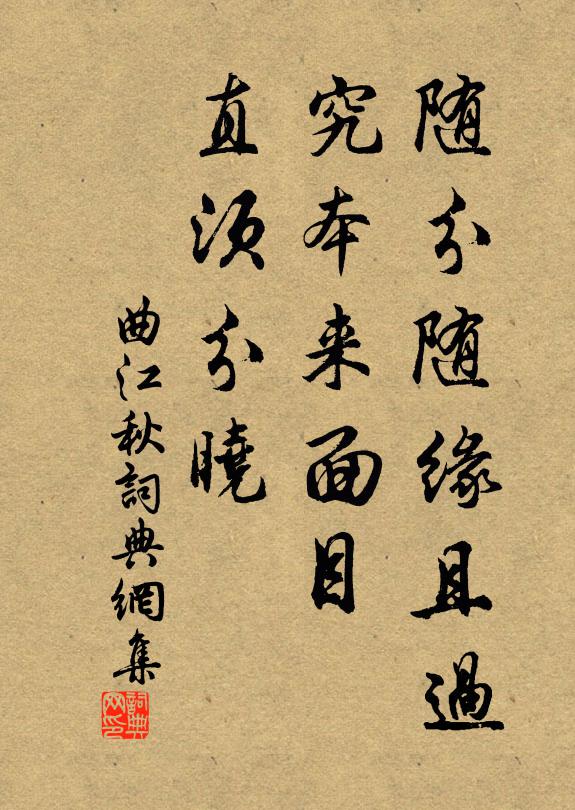 随分随缘且過
究本来面目
直须分曉
曲江秋詞典網集
詞典网印